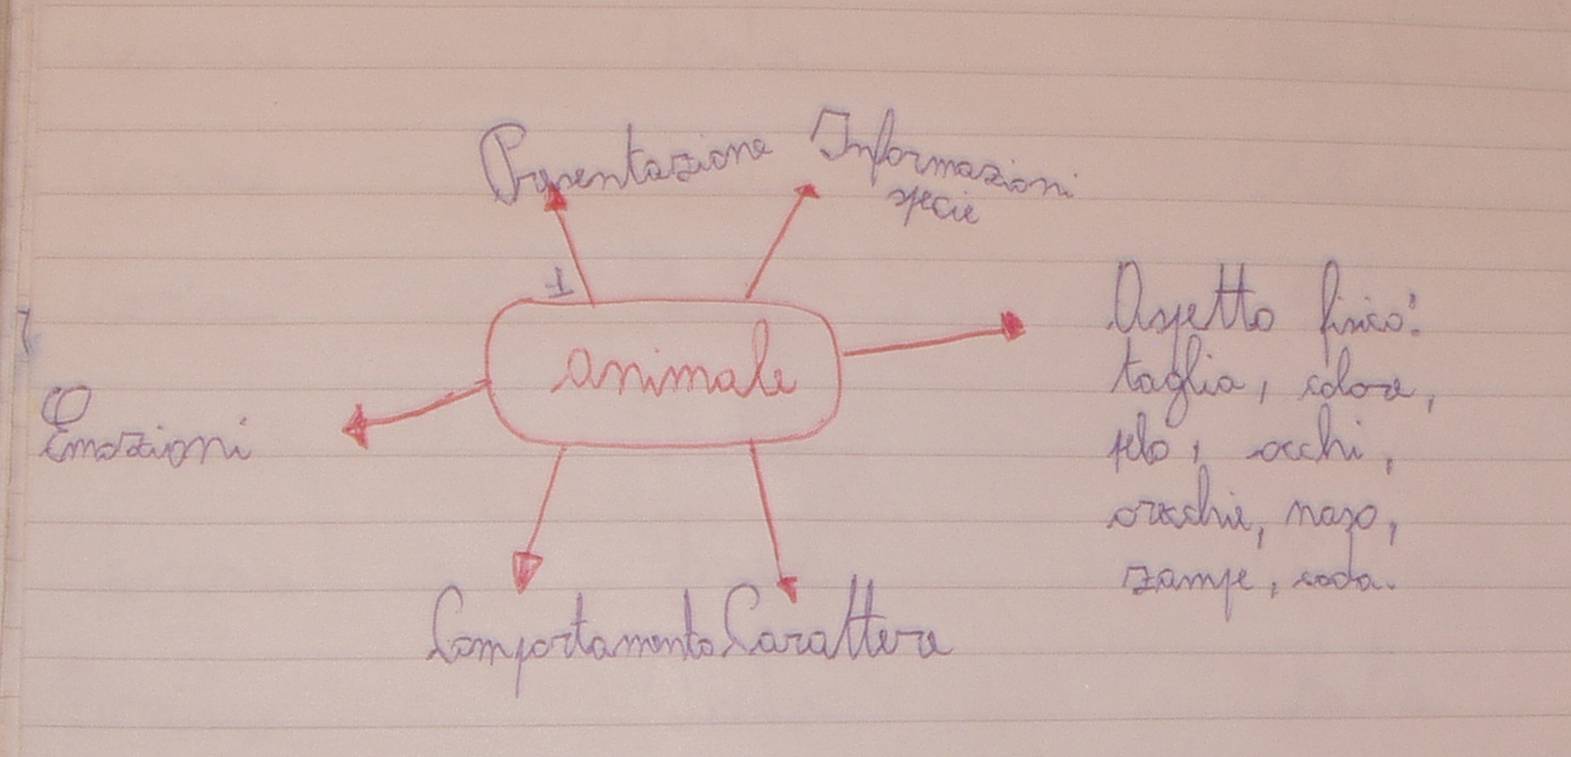 Presentazione
Informazioni
specie
1
animale
Aspetto fisico:
taglia, colore,
pelo, occhi,
orecchie, naso,
zampe, coda.
Emozioni
Comportamento
Carattere